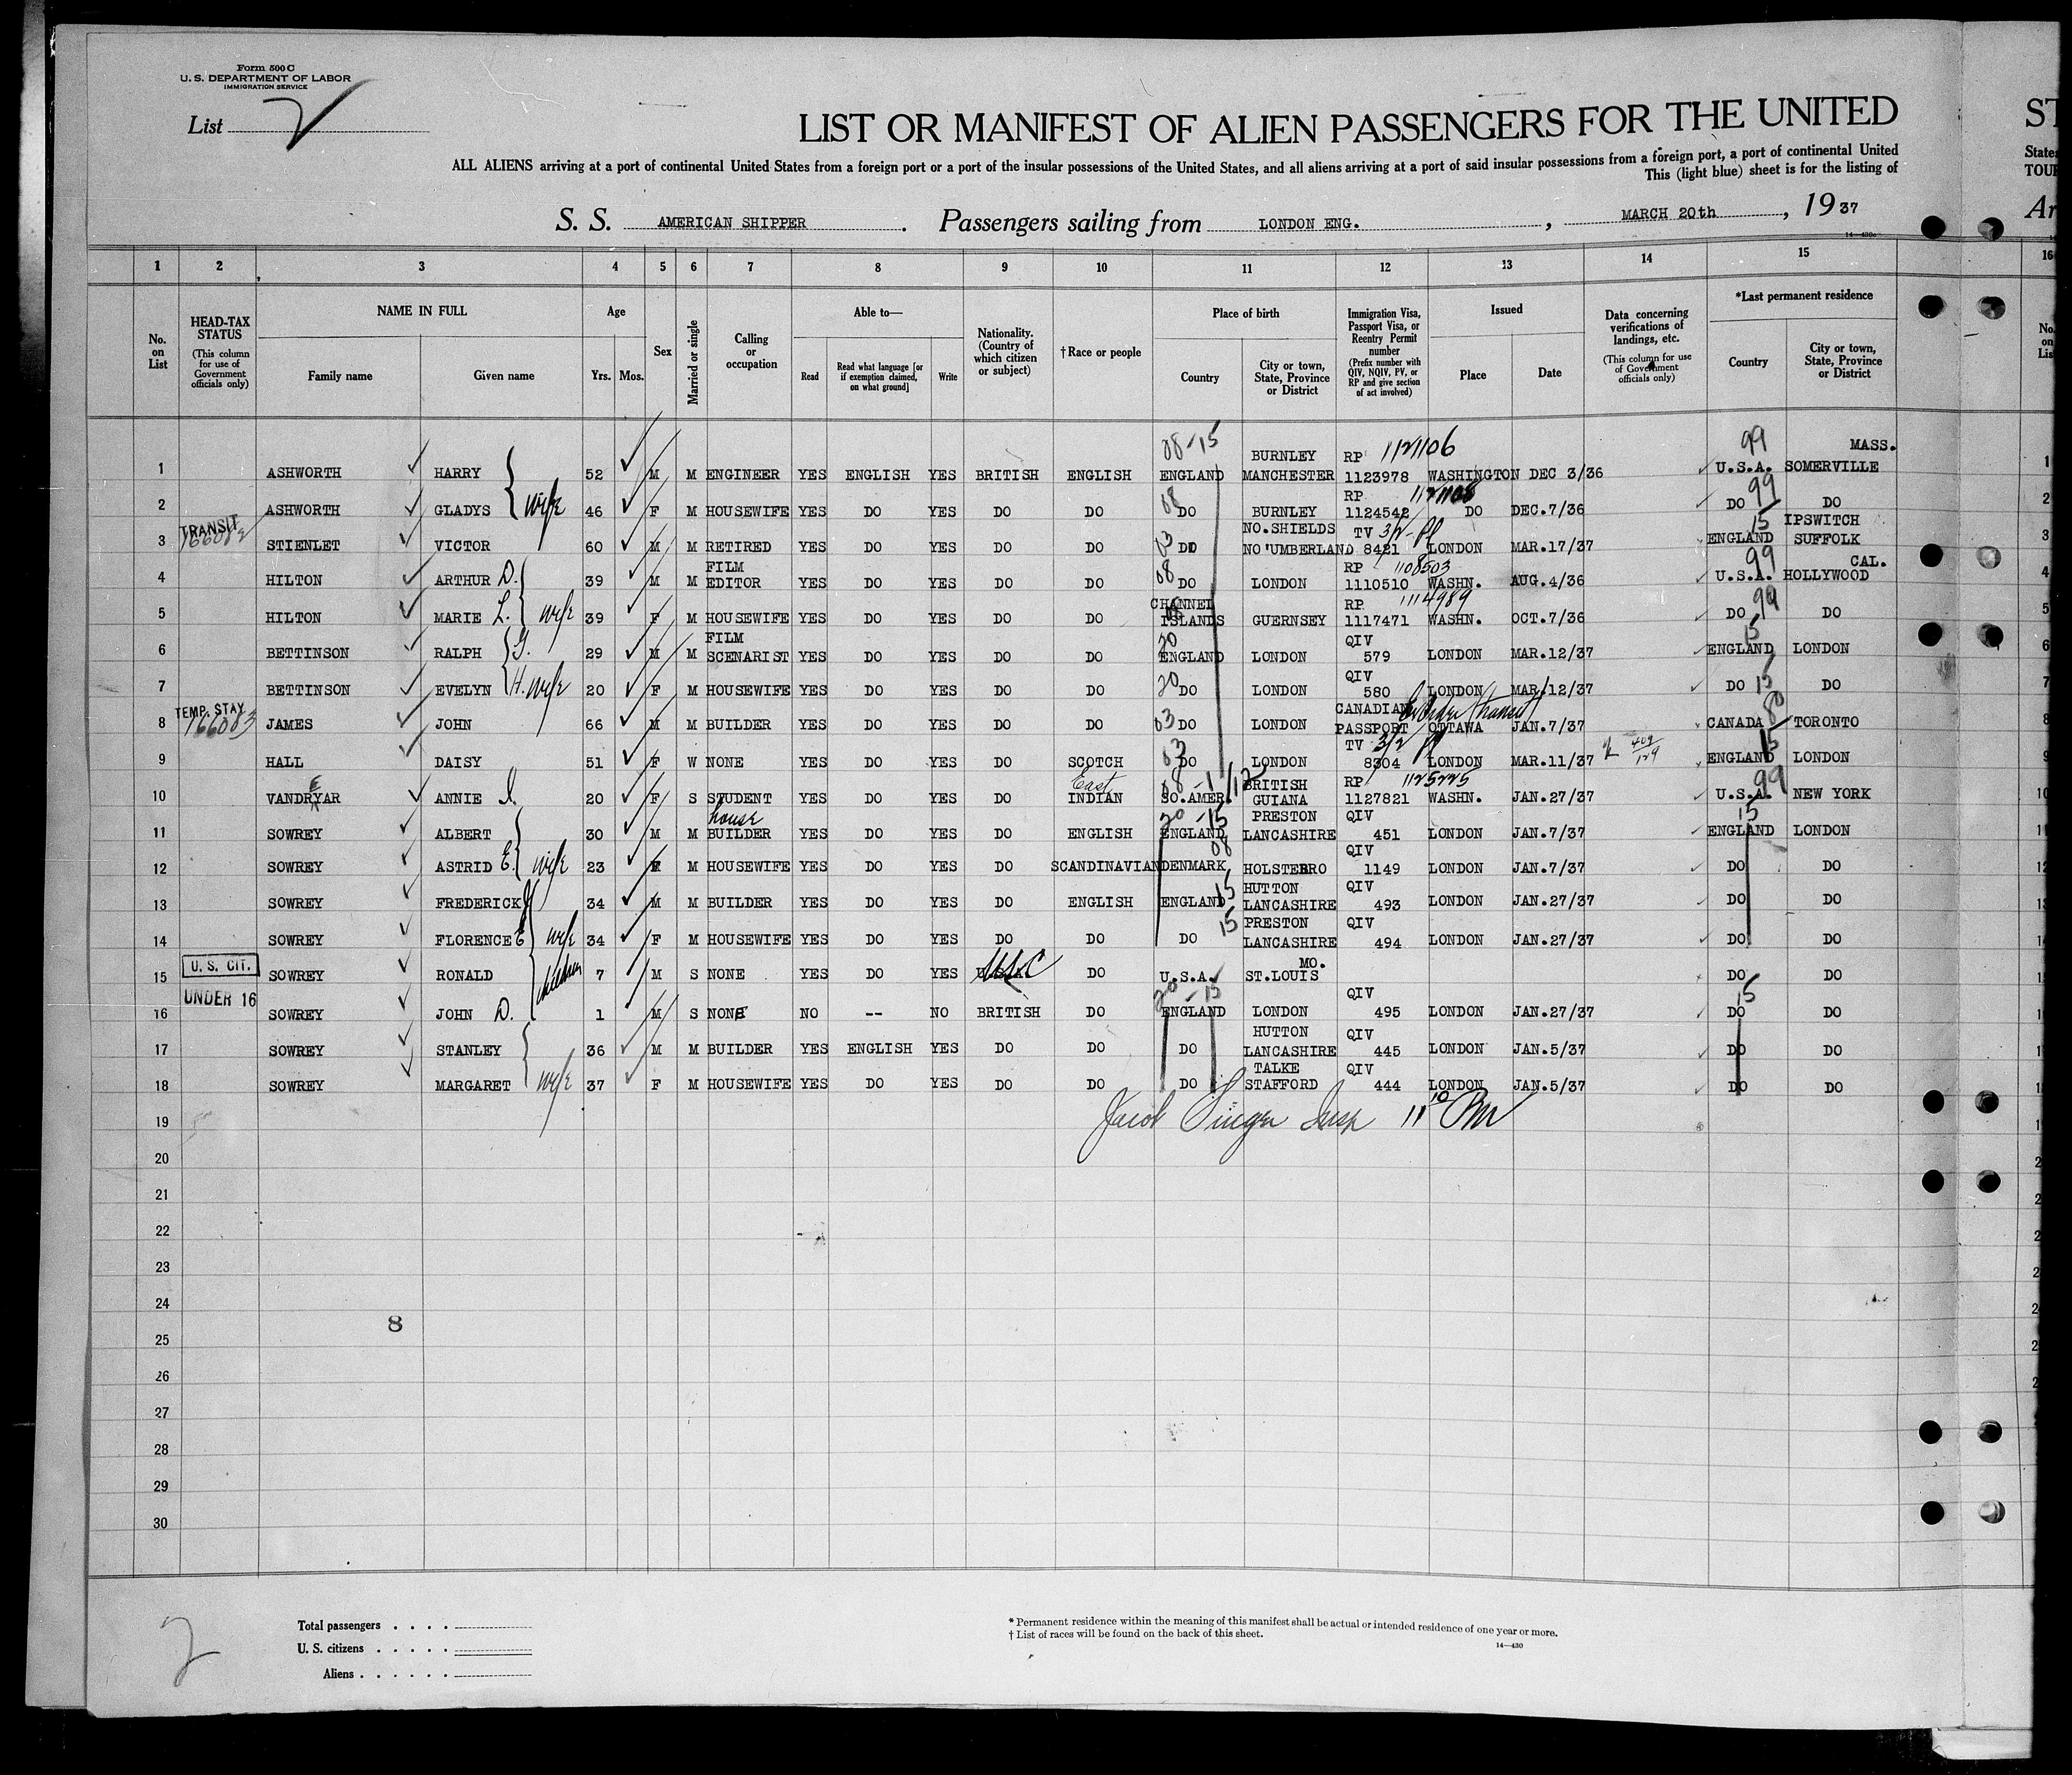 Form 500 C
U. S. DEPARTMENT OF LABOR
IMMIGRATION SERVICE
List 2
LIST OR MANIFEST OF ALIEN PASSENGERS FOR THE UNITED
ST
ALL ALIENS arriving at a port of continental United States from a foreign port or a port of the insular possessions of the United States, and all aliens arriving at a port of said insular possessions from a foreign port, a port of continental United
This (light blue) sheet is for the listing of
S. S. AMERICAN SHIPPER. Passengers sailing from LONDON ENG., MARCH 20th, 1937
1 2 3 4 5 6 7 8 9 10 11 12 13 14 15 16
No. on List
HEAD-TAX STATUS (This column for use of Government officials only)
NAME IN FULL Family name Given name
Age Yrs. Mos.
Sex
Married or single
Calling or occupation
Able to— Read Read what language [or if exemption claimed, on what ground] Write
Nationality. (Country of which citizen or subject)
†Race or people
Place of birth Country City or town, State, Province or District
Immigration Visa, Passport Visa, or Reentry Permit number (Prefix number with QIV, NQIV, PV, or RP and give section of act involved)
Issued Place Date
Data concerning verifications of landings, etc. (This column for use of Government officials only)
*Last permanent residence Country City or town, State, Province or District
08-15 BURNLEY RP 1121106 99 MASS.
1 ASHWORTH HARRY 52 M M ENGINEER YES ENGLISH YES BRITISH ENGLISH ENGLAND MANCHESTER 1123978 WASHINGTON DEC 3/36 U.S.A. SOMERVILLE
RP 99
2 ASHWORTH GLADYS wife 46 F M HOUSEWIFE YES DO YES DO DO 08 DO BURNLEY 1124542 DO DEC.7/36 DO DO
TRANSIT 166082 NO.SHIELDS TV 3/2 15 IPSWICH
3 STIENLET VICTOR 60 M M RETIRED YES DO YES DO DO 03 DO NO'UMBERLAND 8421 LONDON MAR.17/37 ENGLAND SUFFOLK
FILM RP 1108503 99 CAL.
4 HILTON ARTHUR D. 39 M M EDITOR YES DO YES DO DO 08 DO LONDON 1110510 WASHN. AUG.4/36 U.S.A. HOLLYWOOD
CHANNEL RP 1114989 99
5 HILTON MARIE L. wife 39 F M HOUSEWIFE YES DO YES DO DO ISLANDS GUERNSEY 1117471 WASHN. OCT.7/36 DO DO
FILM 20 QIV 15
6 BETTINSON RALPH G. 29 M M SCENARIST YES DO YES DO DO ENGLAND LONDON 579 LONDON MAR.12/37 ENGLAND LONDON
QIV
7 BETTINSON EVELYN H. wife 20 F M HOUSEWIFE YES DO YES DO DO 20 DO LONDON 580 LONDON MAR.12/37 DO 15 DO
TEMP. STAY 166083 CANADIAN 80
8 JAMES JOHN 66 M M BUILDER YES DO YES DO DO 03 DO LONDON PASSPORT OTTAWA JAN.7/37 CANADA TORONTO
TV 3/2 15
9 HALL DAISY 51 F W NONE YES DO YES DO SCOTCH 03 DO LONDON 8304 LONDON MAR.11/37 ENGLAND LONDON
E East BRITISH RP 1125225 99
10 VANDRYAR ANNIE I. 20 F S STUDENT YES DO YES DO INDIAN SO.AMER. GUIANA 1127821 WASHN. JAN.27/37 U.S.A. NEW YORK
house 20-15 PRESTON QIV 15
11 SOWREY ALBERT 30 M M BUILDER YES DO YES DO ENGLISH ENGLAND LANCASHIRE 451 LONDON JAN.7/37 ENGLAND LONDON
08 QIV
12 SOWREY ASTRID E. wife 23 F M HOUSEWIFE YES DO YES DO SCANDINAVIAN DENMARK HOLSTEBRO 1149 LONDON JAN.7/37 DO DO
15 HUTTON QIV
13 SOWREY FREDERICK 34 M M BUILDER YES DO YES DO ENGLISH ENGLAND LANCASHIRE 493 LONDON JAN.27/37 DO DO
15 PRESTON QIV
14 SOWREY FLORENCE E wife 34 F M HOUSEWIFE YES DO YES DO DO DO LANCASHIRE 494 LONDON JAN.27/37 DO DO
U. S. CIT. MO.
15 SOWREY RONALD children 7 M S NONE YES DO YES USC DO U.S.A. ST.LOUIS DO DO
UNDER 16 20-15 QIV 15
16 SOWREY JOHN D. 1 M S NONE NO -- NO BRITISH DO ENGLAND LONDON 495 LONDON JAN.27/37 DO DO
HUTTON QIV
17 SOWREY STANLEY 36 M M BUILDER YES ENGLISH YES DO DO DO LANCASHIRE 445 LONDON JAN.5/37 DO DO
TALKE QIV
18 SOWREY MARGARET wife 37 F M HOUSEWIFE YES DO YES DO DO DO STAFFORD 444 LONDON JAN.5/37 DO DO
19 Jacob Insp 11 10 PM
20
21
22
23
24
8
25
26
27
28
29
30
2
Total passengers
U. S. citizens
Aliens
* Permanent residence within the meaning of this manifest shall be actual or intended residence of one year or more.
† List of races will be found on the back of this sheet.
14—430